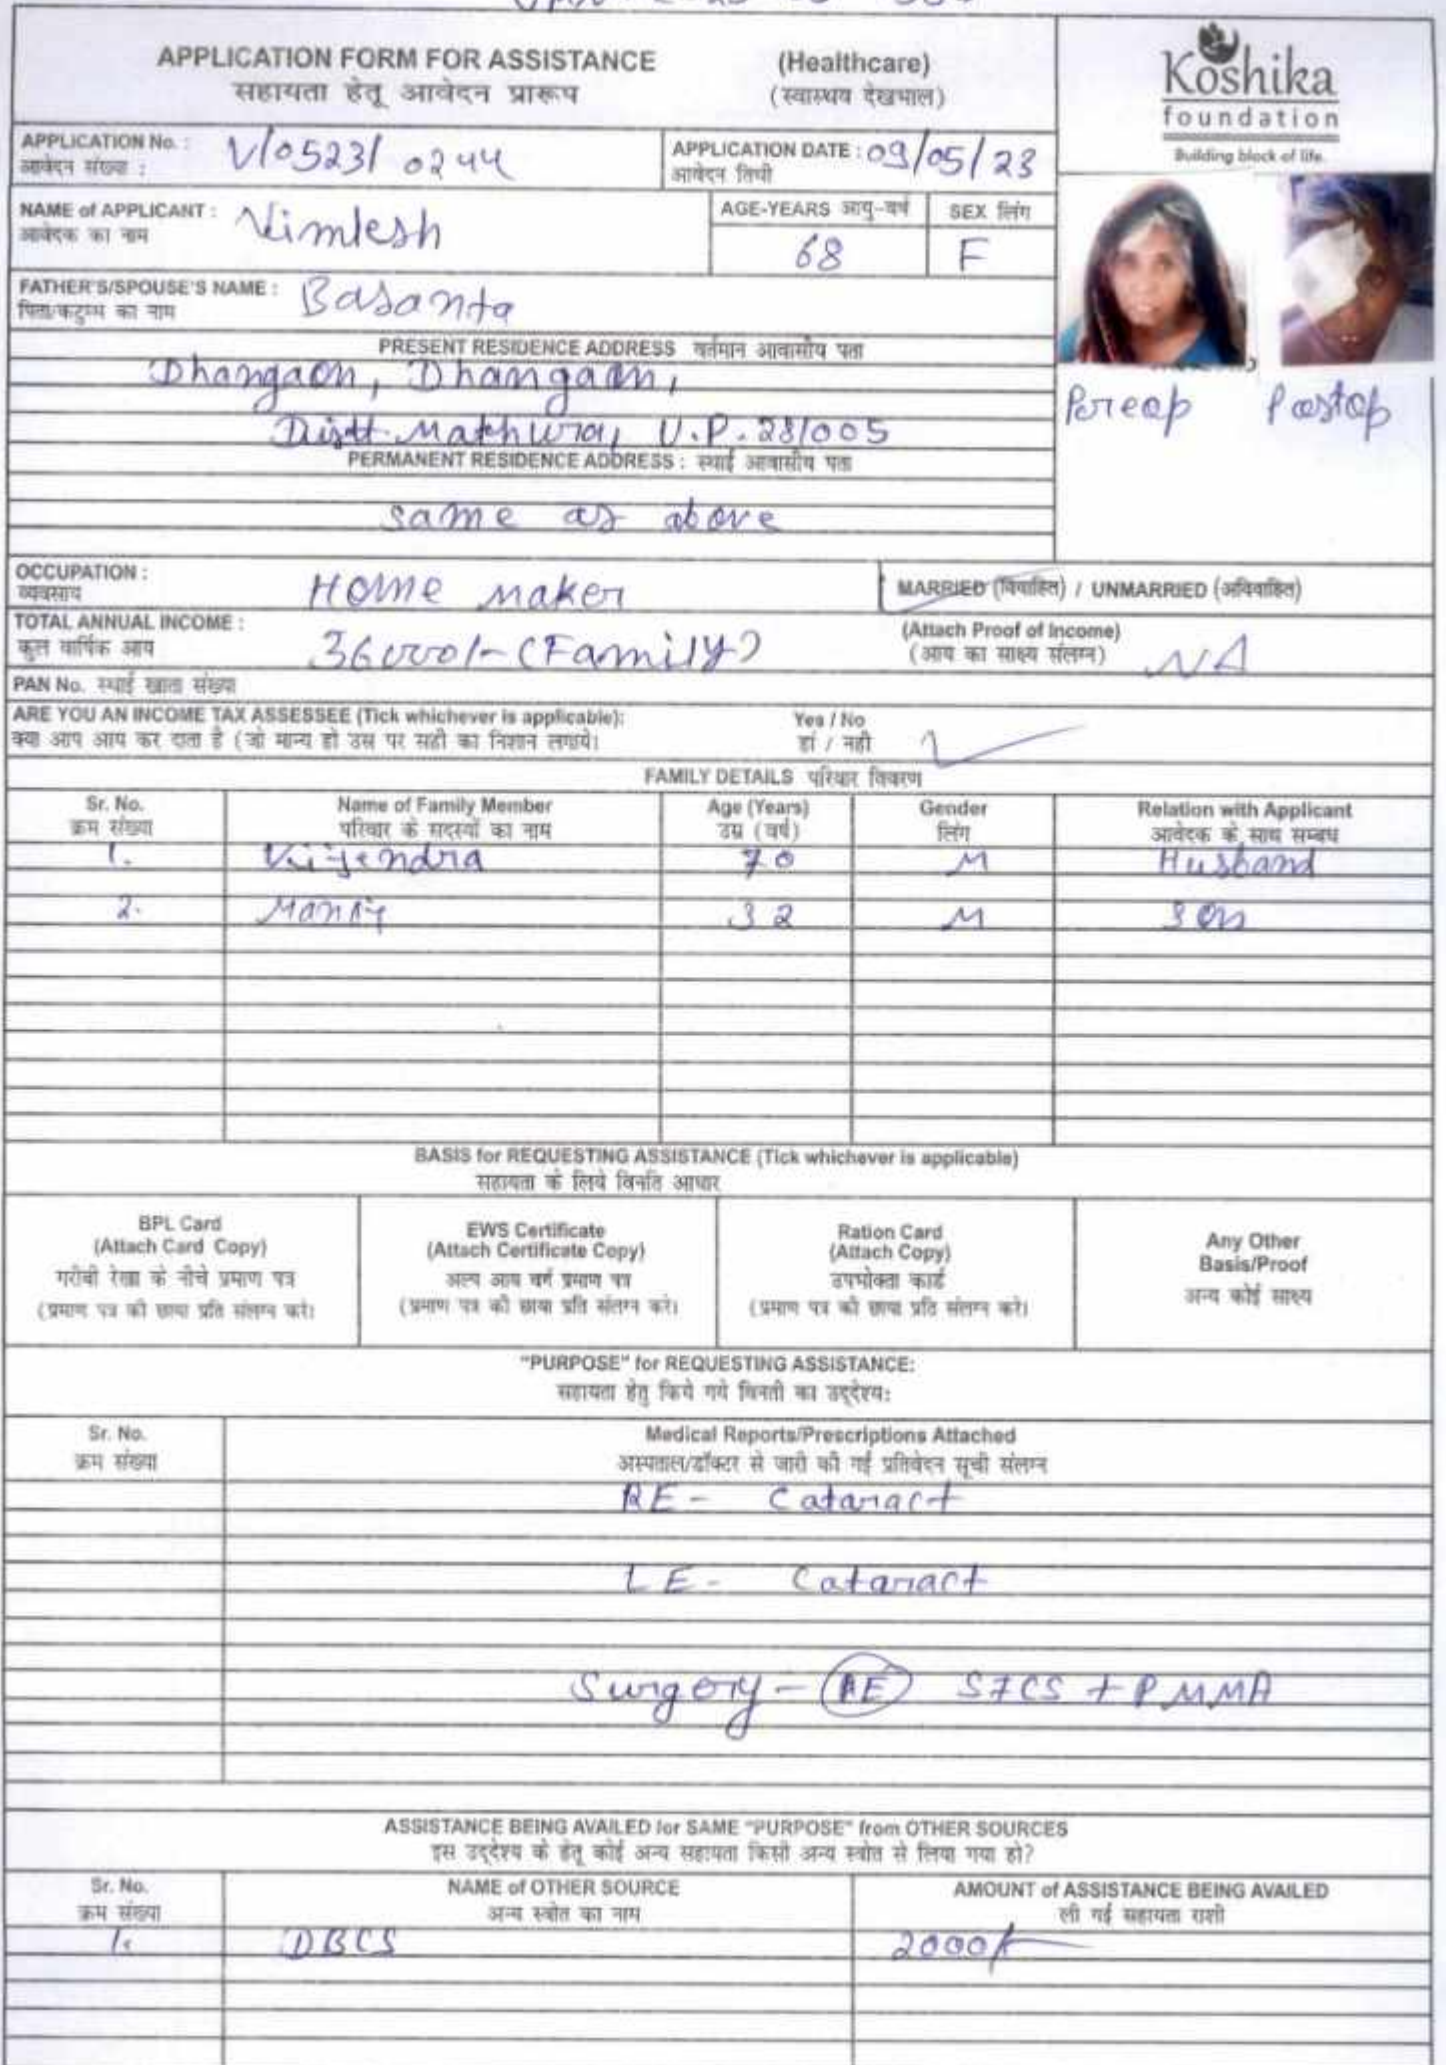 APPLICATION FORM FOR ASSISTANCE (Healthcare)
सहायता हेतू आवेदन प्रारूप (स्वास्थय देखभाल)
Koshika
foundation
Building block of life.
APPLICATION No. : V/0523/0244
आवेदन संख्या :
APPLICATION DATE : 09/05/23
आवेदन तिथी
NAME of APPLICANT : Vimlesh
आवेदक का नाम
AGE-YEARS आयु-वर्ष
68
SEX लिंग
F
FATHER'S/SPOUSE'S NAME : Basanta
पिता/कटुम्भ का नाम
PRESENT RESIDENCE ADDRESS वर्तमान आवासीय पता
Dhangaon, Dhangaon,
Distt. Mathura, U.P. 281005
Preop Postop
PERMANENT RESIDENCE ADDRESS : स्थाई आवासीय पता
same as above
OCCUPATION : Home maker
व्यवसाय
MARRIED (विवाहित) / UNMARRIED (अविवाहित)
TOTAL ANNUAL INCOME : 36000/- (Family)
कुल वार्षिक आय
(Attach Proof of Income) NA
(आय का साक्ष्य संलग्न)
PAN No. स्थाई खाता संख्या
ARE YOU AN INCOME TAX ASSESSEE (Tick whichever is applicable): Yes / No
क्या आप आय कर दाता है (जो मान्य हो उस पर सही का निशान लगाये। हां / नही
FAMILY DETAILS परिवार विवरण
Sr. No. Name of Family Member Age (Years) Gender Relation with Applicant
क्रम संख्या परिवार के सदस्यों का नाम उम्र (वर्ष) लिंग आवेदक के साथ सम्बध
1. Vijendra 70 M Husband
2. 32 M Son
BASIS for REQUESTING ASSISTANCE (Tick whichever is applicable)
सहायता के लिये विनति आधार
BPL Card
(Attach Card Copy)
गरीबी रेखा के नीचे प्रमाण पत्र
(प्रमाण पत्र की छाया प्रति संलग्न करे।
EWS Certificate
(Attach Certificate Copy)
अल्प आय वर्ग प्रमाण पत्र
(प्रमाण पत्र की छाया प्रति संलग्न करे।
Ration Card
(Attach Copy)
उपभोक्ता कार्ड
(प्रमाण पत्र की छाया प्रति संलग्न करे।
Any Other
Basis/Proof
अन्य कोई साक्ष्य
"PURPOSE" for REQUESTING ASSISTANCE:
सहायता हेतु किये गये विनती का उद्देश्य:
Sr. No. Medical Reports/Prescriptions Attached
क्रम संख्या अस्पताल/डॉक्टर से जारी की गई प्रतिवेदन सूची संलग्न
RE - Cataract
LE - Cataract
Surgery - RE SICS + PMMA
ASSISTANCE BEING AVAILED for SAME "PURPOSE" from OTHER SOURCES
इस उद्देश्य के हेतू कोई अन्य सहायता किसी अन्य स्त्रोत से लिया गया हो?
Sr. No. NAME of OTHER SOURCE AMOUNT of ASSISTANCE BEING AVAILED
क्रम संख्या अन्य स्त्रोत का नाम ली गई सहायता राशी
1. DBCS 2000/-